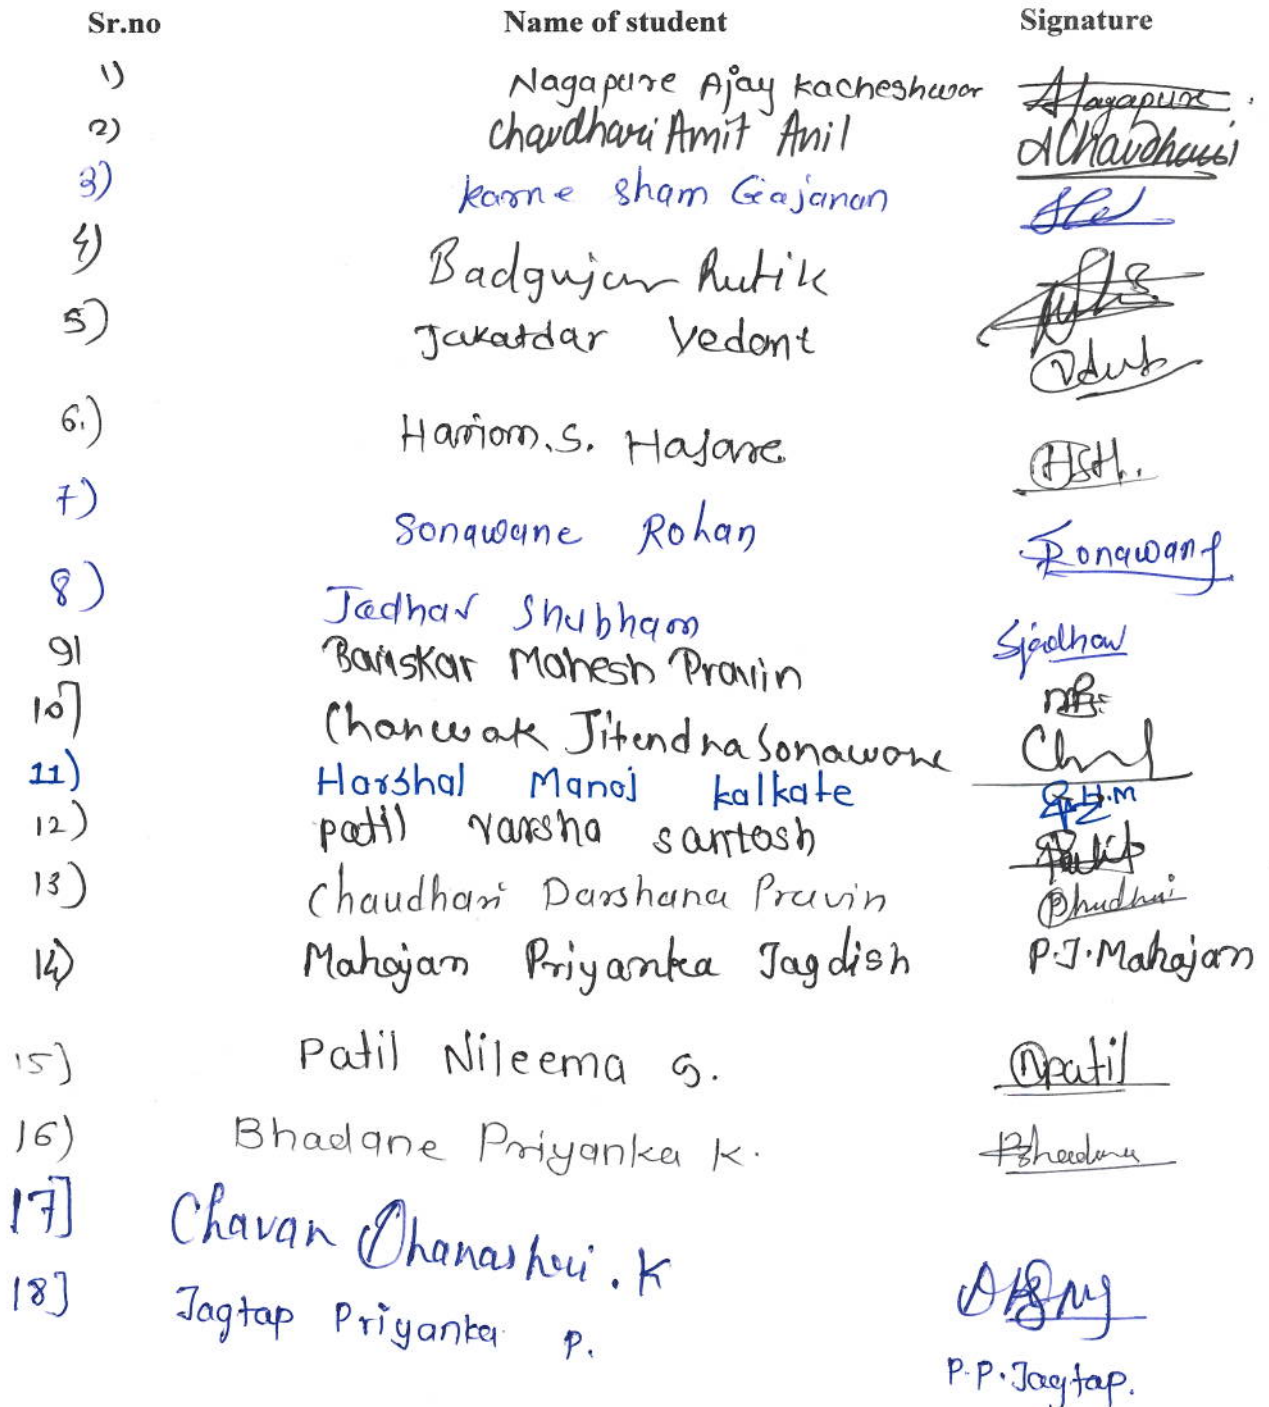 Sr.no Name of student Signature
1) Nagapure Ajay Kacheshwar ANagapure.
2) Chaudhari Amit Anil AChaudhari
3) Karne Sham Gajanan
4) Badgujar Rutik
5) Jakatdar Vedant
6.) Hariom.S. Hajare HSH.
7) Sonawane Rohan Ronawane
8) Jadhav Shubham Sjadhav
9) Bariskar Mahesh Pravin
10] Charwak Jitendra Sonawane
11) Harshal Manoj kalkate H.M
12) patil varsha santosh
13) Chaudhari Darshana Pravin
14) Mahajan Priyanka Jagdish P.J.Mahajan
15] Patil Nileema S. Npatil
16) Bhadane Priyanka K. Bhadane
17] Chavan Dhanashri.K
18] Jagtap Priyanka P.
P.P.Jagtap.